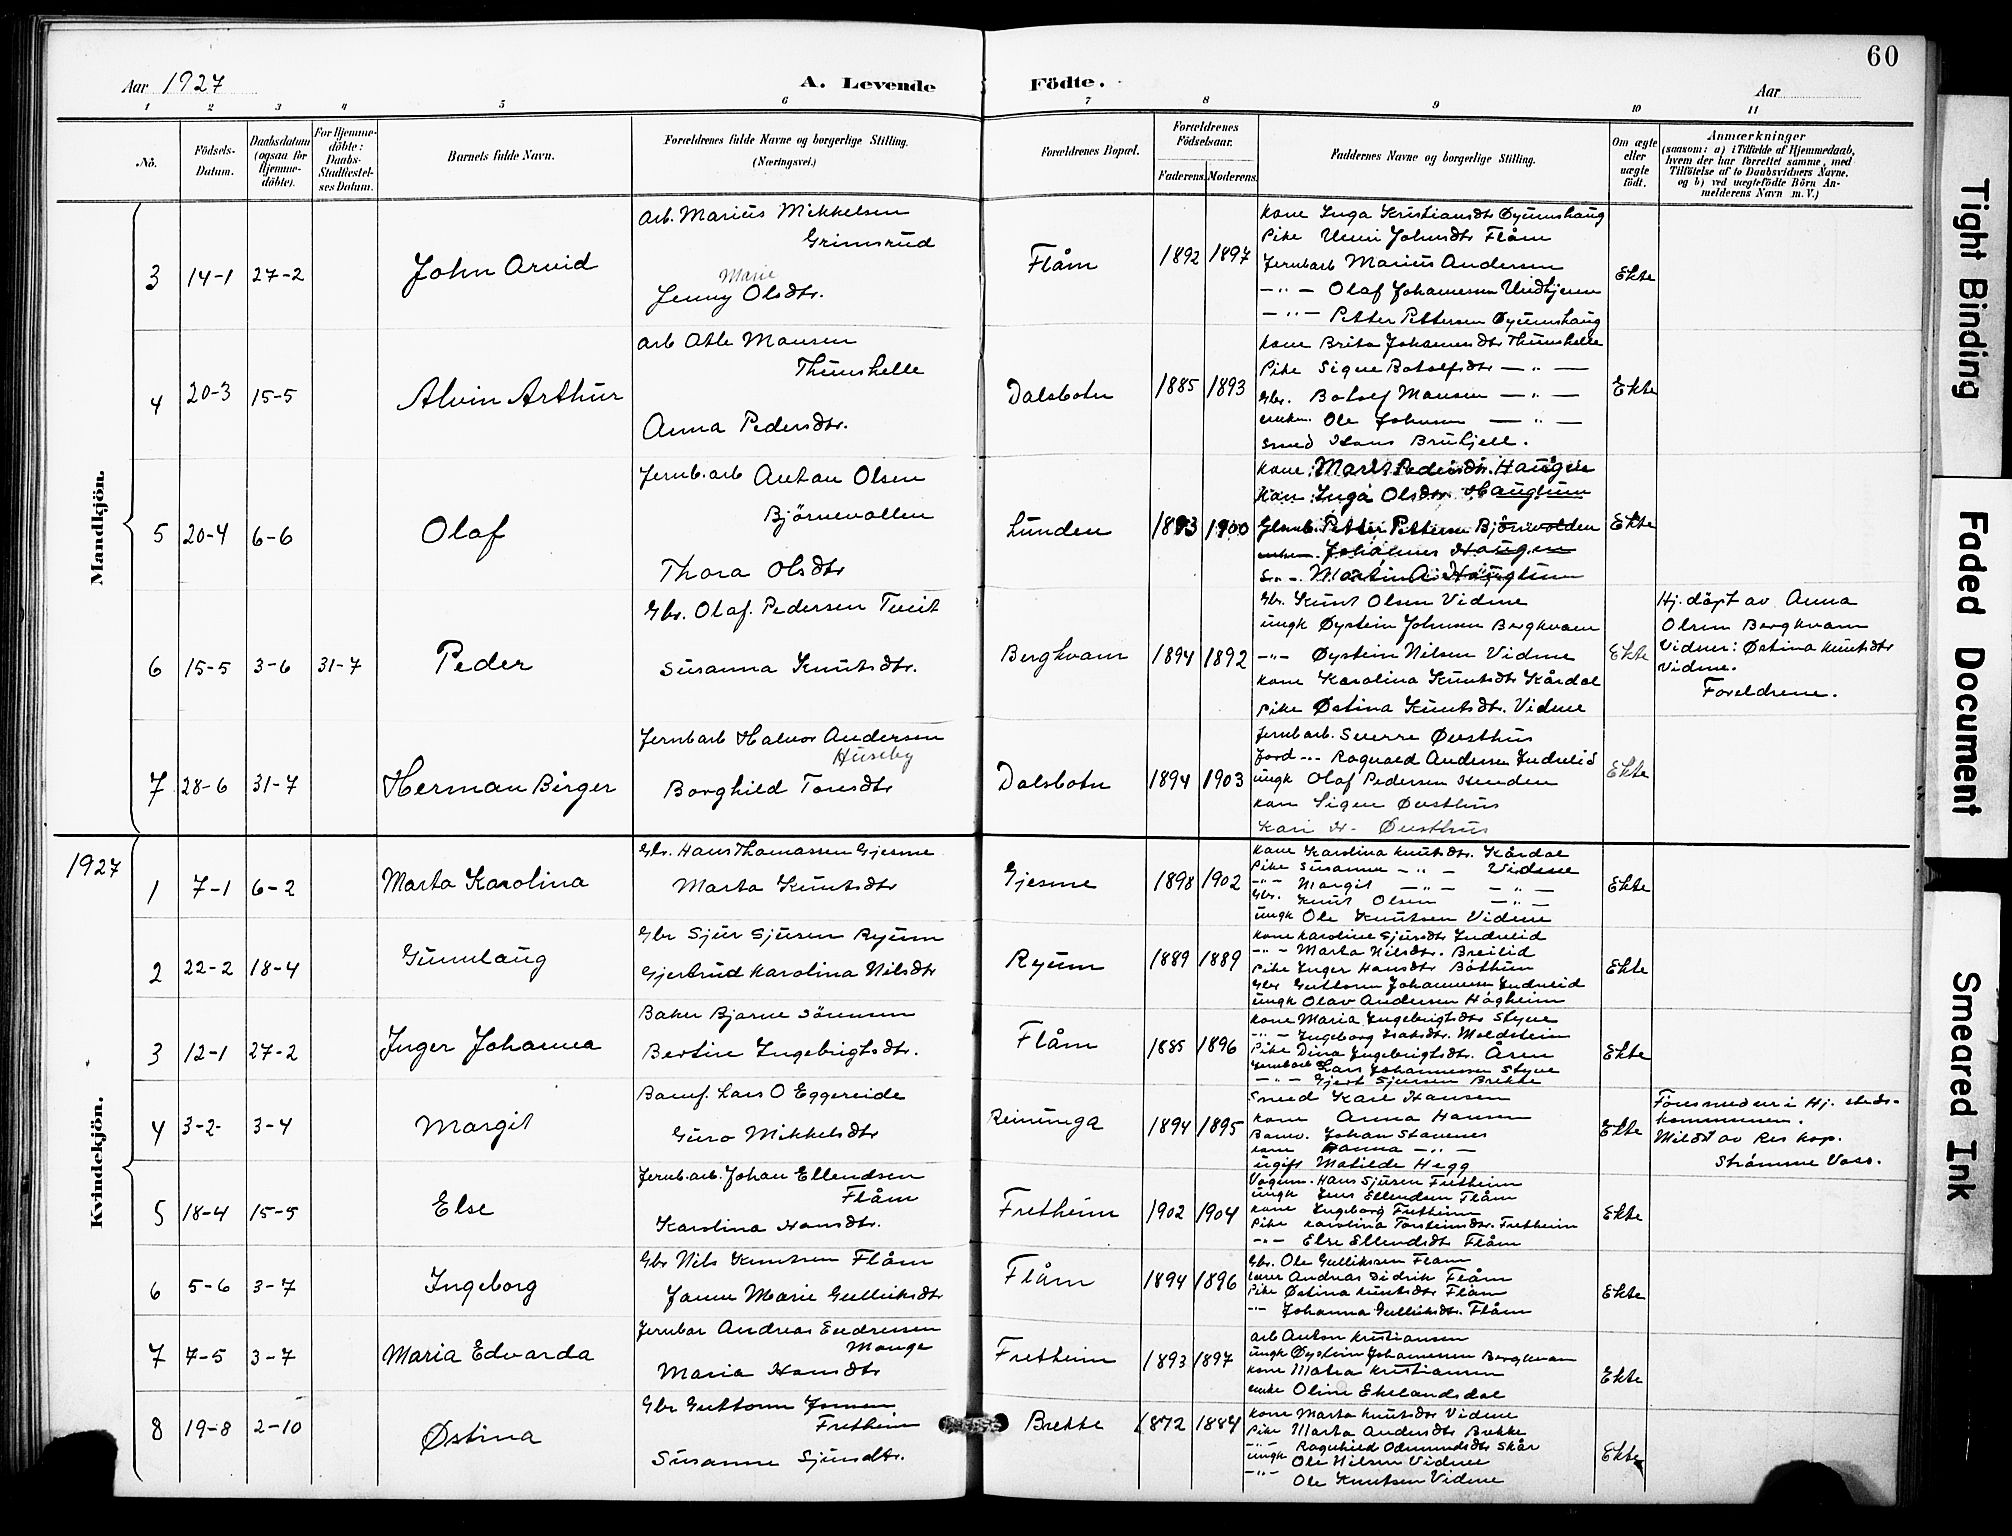 60
Aar 1927
A. Levende Födte.
Aar
1 2 3 4 5 6 7 8 9 10 11
No.
Födsels-Datum.
Daabsdatum (ogsaa for Hjemme-döbte).
For Hjemme-döbte: Daabs-Stadfæstel-ses Datum.
Barnets fulde Navn.
Forældrenes fulde Navne og borgerlige Stilling. (Næringsvei.)
Forældrenes Bopæl.
Forældrenes Födselsaar.
Faderens. Moderens.
Faddernes Navne og borgerlige Stilling.
Om ægte eller uægte födt.
Anmærkninger
(saasom: a) i Tilfælde af Hjemmedaab,
hvem der har forrettet samme, med
Tilföielse af to Daabsvidners Navne.
og b) ved uægtefödte Börn An-
melderens Navn m. V.)
Mandkjön.
3 14-1 27-2 John Arvid
arb. Marius Mikkelsen
Grimsrud
Marie
Jenny Olsdtr.
Flåm 1892 1897
kone Inga Kristiansdtr Øyumshaug
Pike Unni Johnsdtr Flåm
Jernbarb Marius Andersen
—"— Olaf Johannesen Undhjem
—"— Petter Pettersen Øyumshaug
Ekte
4 20-3 15-5 Alvin Arthur
arb Atle Monsen
Thunshelle
Anna Pedersdtr.
Dalsbotn 1885 1893
kone Brita Johannesdtr Thunshelle
Pike Signe Botolfsdtr —"—
Gbr. Botolf Monsen —"—
enkem. Ole Johnsen —"—
Smed Hans Bruhjell.
Ekte
5 20-4 6-6 Olaf
Jernb.arb Anton Olsen
Bjørnevollen
Thora Olsdtr
Lunden 1893 1900
kone Marit Pedersdtr. Haugen
Kone Inga Olsdtr. Haugtun
Petter Pettersen Bjørnevolden
Johannes Haugen
Martin A. Haugtun
Ekte
6 15-5 3-6 31-7 Peder
Gbr. Olaf Pedersen Tveit
Susanna Knutsdtr.
Berghvam 1894 1892
Gbr. Knut Olsen Vidme
ungk Øystein Johnsen Bergkvam
—"— Øystein Nilsen Vidme
kone Karolina Knutsdtr Kårdal
pike Østina Knutsdtr. Vidme
Ekte
Hj. døpt av Anna
Olsen Bergkvam
Vidner: Østina Knutsdtr
Vidme.
Foreldrene.
7 28-6 31-7 Herman Birger
Jernbarb Halvor Andersen
Huseby
Borghild Toresdtr
Dalsbotn 1894 1903
Jernbarb. Sverre Øvsthus
Jord —"— Ragnvald Andersen Indrelid
ungk Olaf Pedersen Hunden
kone Signe Øvsthus
Kari H. Øvsthus
Ekte
1927
Kvindekjön.
1 7-1 6-2 Marta Karolina
Gbr. Hans Thomassen Gjesme
Marta Knutsdtr
Gjesme 1898 1902
kone Karolina Knutsdtr. Kårdal
Pike Susanna —"— Vidme
—"— Margit —"— —"—
Gbr. Knut Olsen —"—
ungk Ole Knutsen Vidme
Ekte
2 22-2 18-4 Gunnlaug
Gbr Sjur Sjursen Ryum
Gjertrud Karolina Nilsdtr
Ryum 1889 1889
kone Karoline Sjursdtr Indrelid
—"— Marta Nilsdtr. Breilid
Pike Inger Hansdtr Båthun
Gbr Guttorm Johannesen Indrelid
ungk Olav Andersen Hågheim
Ekte
3 12-1 27-2 Inger Johanna
Baker Bjarne Sörensen
Bertine Ingebrigtsdtr.
Flåm 1885 1896
kone Maria Ingebrigtsdtr Styve
—"— Ingeborg Isaksdtr. Moldstein
Pike Dina Ingebrigtsdtr. Åren
Jernbarb Lars Johannessen Styve
—"— Gjert Sjursen Brekke
Ekte
4 3-2- 3-4 Margit
Banef. Lars O Eggereide
Guro Mikkelsdtr
Reinunga 1894 1895
Smed Karl Hansen
kone Anna Hansen
Banev. Johan Stavenes
kone Hanna —"—
ugift Matilde Hegg
Ekte
Föresmeden i Hj. steds-
kommunen.
Meldt av Res kap.
Strømme Voss.
5 18-4 15-5 Else
Jernb.arb. Johan Ellendsen
Flåm
Karolina Hansdtr.
Fretheim 1902 1904
Vognm. Hans Sjursen Fretheim
ungk Jens Ellendsen Flåm
kone Ingeborg Fretheim
Pike Karolina Torsteinsdtr. Fretheim
—"— Else Ellendsdtr Flåm
Ekte
6 5-6 3-7 Ingeborg
Gbr Nils Knutsen Flåm
Janne Marie Gulliksdtr
Flåm 1894 1896
Gbr. Ole Gulliksen Flåm
lærer Andreas Didrik Flåm
Pike Østina Knutsdtr Flåm
—"— Johanna Gulliksdtr. Flåm
Ekte
7 7-5 3-7 Maria Edvarda
Jernbar Andreas Endresen
Monge
Maria Hansdtr
Fretheim 1893 1897
arb Anton Kristiansen
ungk Øystein Johannesen Bergkvam
kone Matea Kristiansen
enke Oline Ekelandsdal
Ekte
8 19-8 2-10 Østina
Gbr Guttorm Jonsen
Fretheim
Susanne Sjursdtr.
Brekke 1872 1884
kone Marta Knutsdtr Vidme
Pike Marta Andersdtr Brekke
—"— Ragnhild Odmundsdtr Skår
ungk Ole Nilsen Vidme
—"— Ole Knutsen Vidme
Ekte
Tight Binding
Faded Document
Smeared Ink